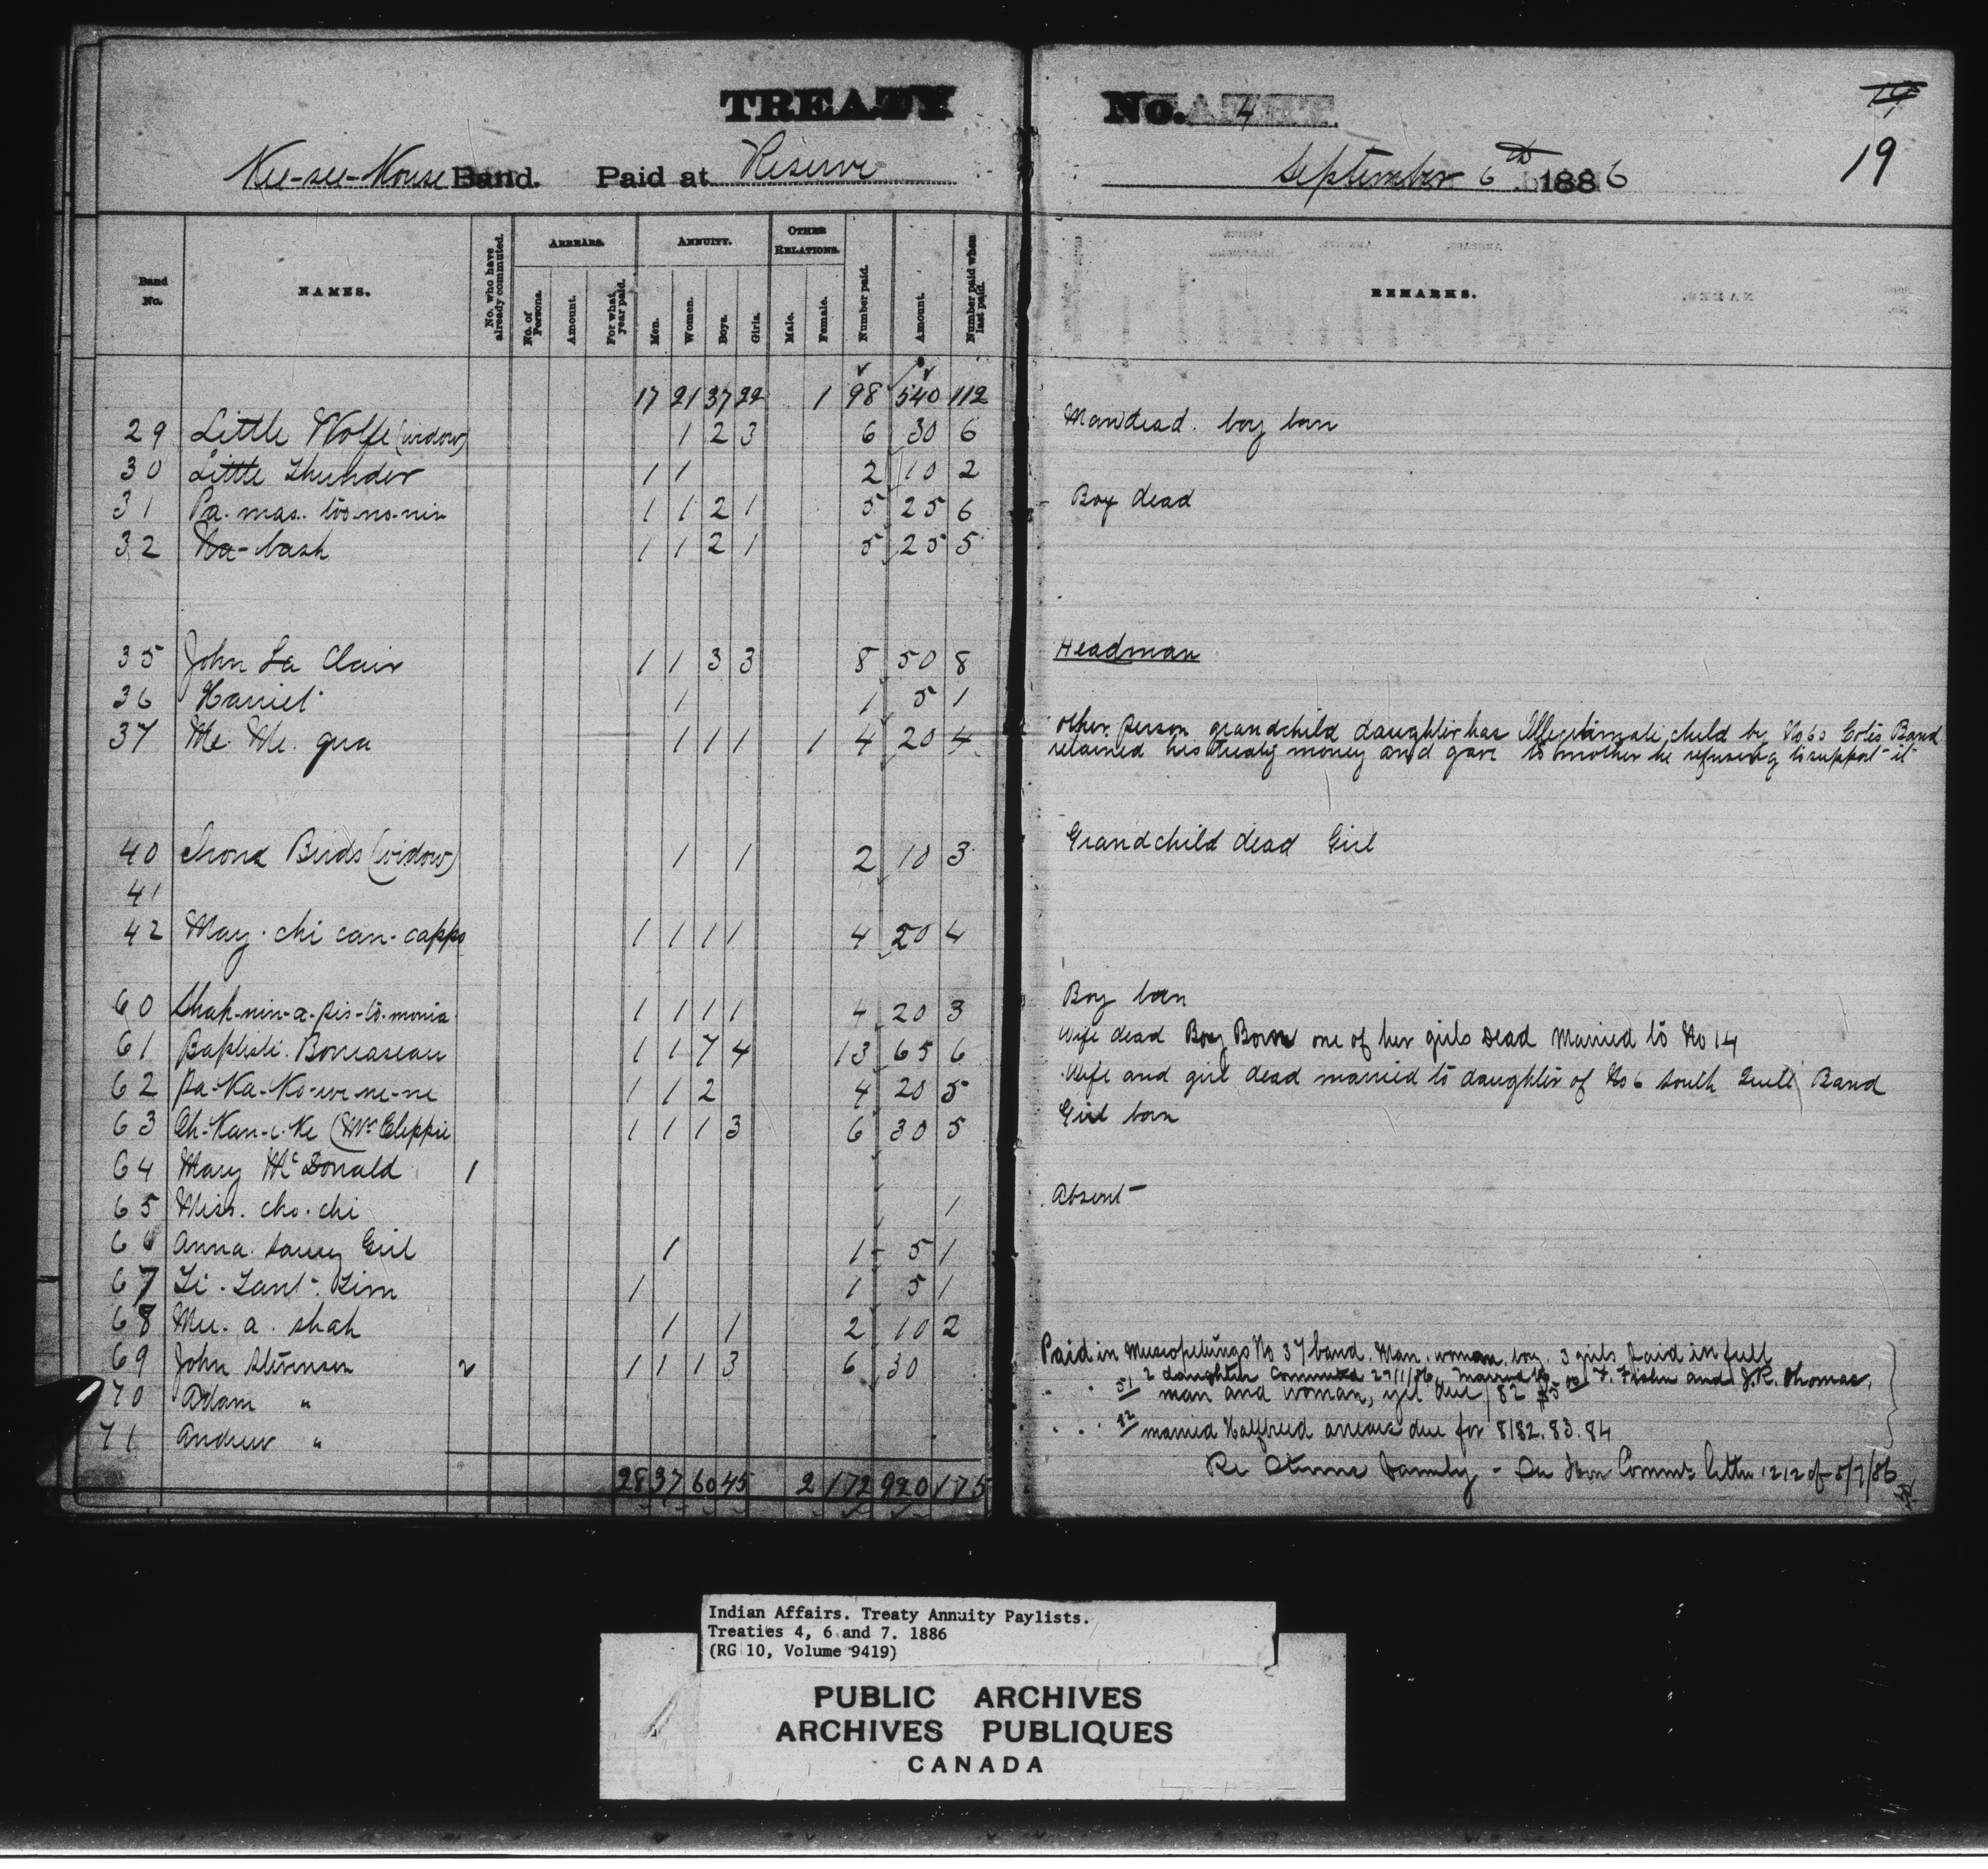 TREATY No. 4
19
Kee-see-Kouse Band. Paid at Reserve September 6th 1886
Band No.
NAMES.
No. who have already commuted.
ARREARS.
No. of Persons.
Amount.
For what year paid.
ANNUITY.
Men.
Women.
Boys.
Girls.
OTHER RELATIONS.
Male.
Female.
Number paid.
Amount.
Number paid when last paid.
REMARKS.
17 21 37 22 1 98 540 112
29 Little Wolfe (widow) 1 2 3 6 30 6 Man dead. boy born
30 Little Thunder 1 1 2 10 2
31 Pa. mas. too-no-nin 1 1 2 1 5 25 6 Boy dead
32 Na-bash 1 1 2 1 5 25 5
35 John La Clair 1 1 3 3 8 50 8 Headman
36 Harriet 1 1 5 1
37 Me. Me. qua 1 1 1 1 4 20 4 other person grandchild daughter has Illegitimate child by No 60 Cote's Band
retained his treaty money and gave to mother he refusing to support it
40 Birds (widow) 1 1 2 10 3 Grandchild dead Girl
41
42 May. chi can. capps 1 1 1 1 4 20 4
60 Shah-nin-a-pis-to-monia 1 1 1 1 4 20 3 Boy born
61 Baptiste. 1 1 7 4 13 65 6 Wife dead Boy Born one of her girls Dead Married to No 14
62 Pa-Ka-Ko-we-ne-ne 1 1 2 4 20 5 Wife and girl dead married to daughter of No 6 South Quill Band
63 Ch-Kan-i-Ke 1 1 1 3 6 30 5 Girl born
64 Mary McDonald 1
65 Miss. cho. chi 1 Absent
66 Anna. Girl 1 1 5 1
67 Li. Lant. Lim 1 1 5 1
68 Mee. a. shah 1 1 2 10 2
69 John Stevenson 2 1 1 1 3 6 30 Paid in Muscopetungs No 37 band. Man. woman. boy. 3 girls paid in full
2 daughters Commuted 29/1/86, Married to F. Fisher and J.R. Thomas.
70 Adam " 51 man and woman, yet due / 82 $5 00
71 Andrew " 52 married Halfbreed arrears due for 81 82. 83. 84
28 37 60 45 2 172 920 175 Re Family - See Hon Commr's letter 1212 of 5/7/86
Indian Affairs. Treaty Annuity Paylists.
Treaties 4, 6 and 7. 1886
(RG 10, Volume 9419)
PUBLIC ARCHIVES
ARCHIVES PUBLIQUES
CANADA